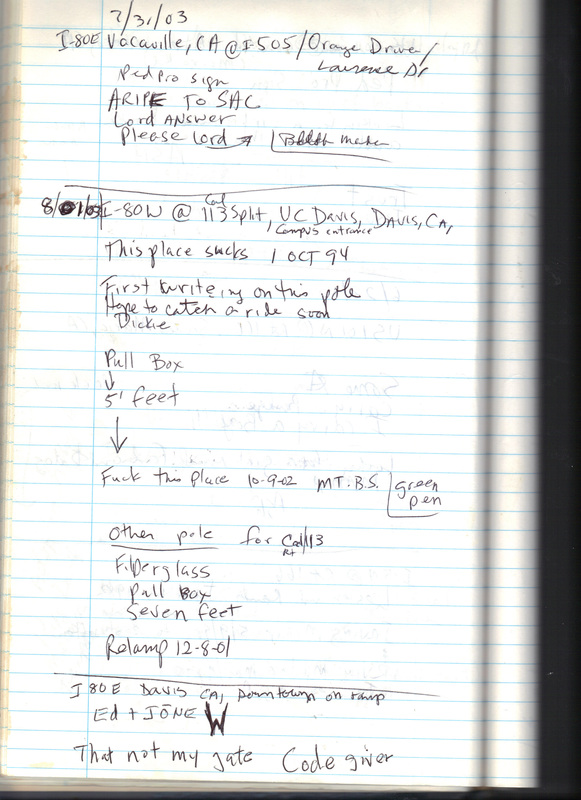 7/31/03
I-80E Vacaville, CA @ I-505/Orange Drive/
Lawrence Dr
Ped Pro sign
A RIPE TO SAC
Lord ANSWER
Please Lord → marker
8/01/03 I-80W @ Cal 113 Split, UC Davis, DAVIS, CA,
Campus entrance
This place sucks 1 OCT 94
First writeing on this pole
Hope to catch a ride soon
Dickie
Pull Box
↓
5' feet
↓
Fuck this place 10-9-02 MT.B.S. green
pen
Other pole for Cal 113
Rt
Fiberglass
pull Box
Seven feet
Relamp 12-8-01
I 80 E Davis CA, Downtown on ramp
Ed + JŌNE W
That not my gate Code giver